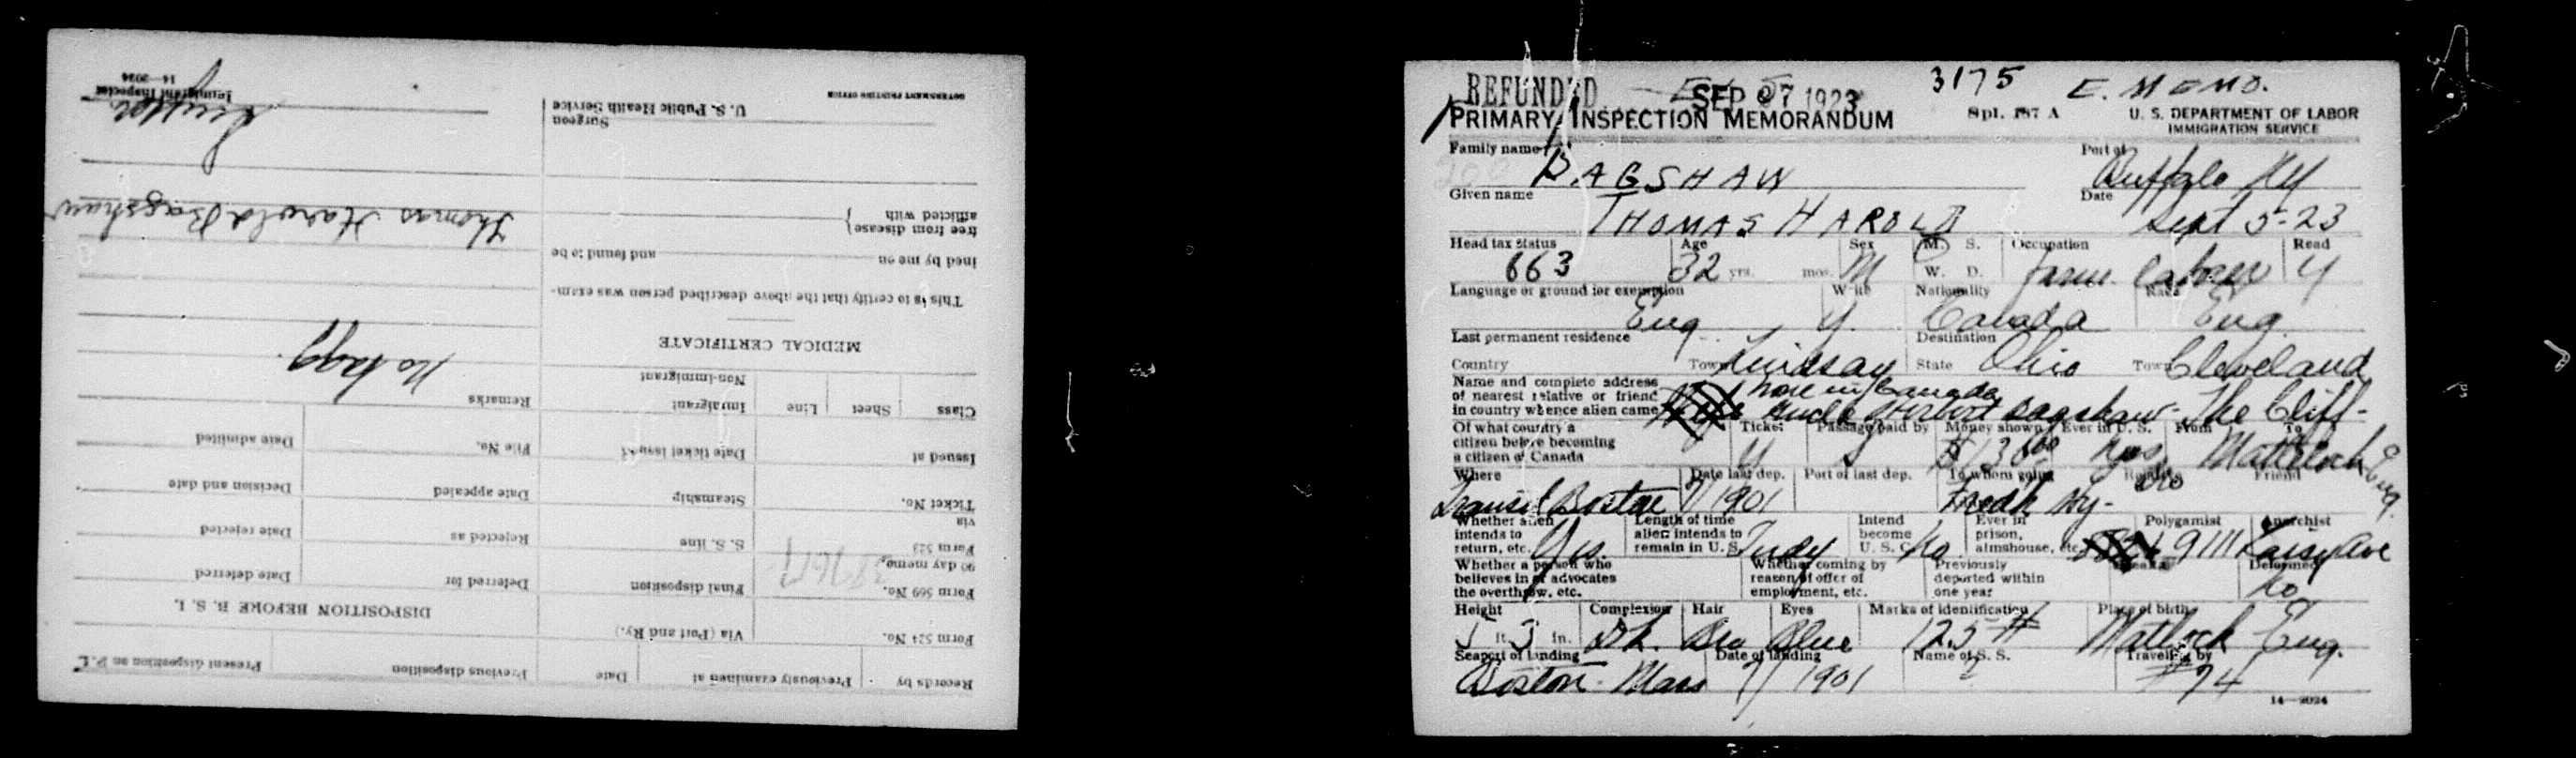 Records by
Previously examined at
Date
Previous disposition
Present disposition on P. I.
Form 524 No.
Via (Port and Ry.)
DISPOSITION BEFORE B. S. I.
Form 569 No.
90 day memo.
Final disposition
Deferred for
Date deferred
Form 523
via
S. S. line
Rejected as
Date rejected
Ticket No.
Steamship
Date appealed
Decision and date
Issued at
Date ticket issued
File No.
Date admitted
Class
Sheet
Line
Immigrant
Non-immigrant
Remarks
MEDICAL CERTIFICATE
This is to certify that the above described person was exam-
ined by me on
and found to be
free from disease
afflicted with
Thomas Harold Bagshaw
Surgeon
U. S. Public Health Service
Immigrant Inspector
GOVERNMENT PRINTING OFFICE
14—2024
REFUNDED
SEP 27 1923
3175
E. MEMO.
PRIMARY INSPECTION MEMORANDUM
Spl. 187 A
U. S. DEPARTMENT OF LABOR
IMMIGRATION SERVICE
Family name
BAGSHAW
Port of
Buffalo NY
Given name
THOMAS HAROLD
Date
Sept 5-23
Head tax status
663
Age
32 yrs. mos.
Sex
M
M. S.
W. D.
Occupation
farm laborer
Read
Y
Language or ground for exemption
Eng
Write
Y.
Nationality
Canada
Race
Eng.
Last permanent residence
Destination
Country
Town Lindsay
State Ohio
Town Cleveland
Name and complete address
of nearest relative or friend
in country whence alien came
none in Canada
Uncle Herbert Bagshaw - The Cliff -
Matlock Eng.
Of what country a
citizen before becoming
a citizen of Canada
Ticket
Y
Passage paid by
S
Money shown
Ever in U. S.
yes
From
To
Where
Transit Boston
Date last dep.
7/1901
Port of last dep.
To whom going
Relative
Friend
9111
Ave
Whether alien
intends to
return, etc.
Yes.
Length of time
alien intends to
remain in U. S.
Indef
Intend
become
U. S. C.
No
Ever in
prison,
almshouse, etc.
Polygamist
Anarchist
Whether a person who
believes in or advocates
the overthrow, etc.
Whether coming by
reason of offer of
employment, etc.
Previously
deported within
one year
Deformed
No
Height
5 ft. 3 in.
Complexion
Dk.
Hair
Bro
Eyes
Blue
Marks of identification
125 #
Place of birth
Matlock Eng.
Seaport of landing
Boston - Mass
Date of landing
7/ 1901
Name of S. S.
?
Traveling by
#74
14—2024